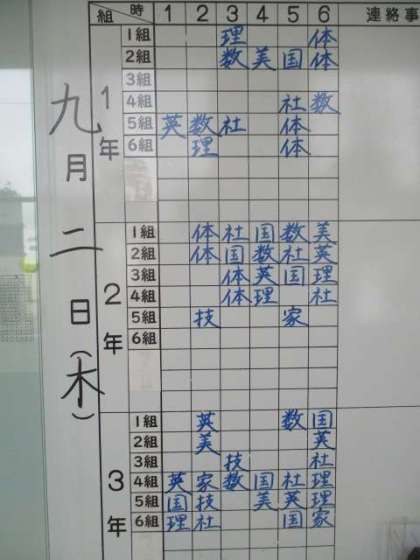 組 時 1 2 3 4 5 6 連絡事
九月二日(木)
1年
1組 理 体
2組 数 美 国 体
3組
4組 社 数
5組 英 数 社 体
6組 理 体
2年
1組 体 社 国 数 美
2組 体 国 数 社 英
3組 体 英 国 理
4組 体 理 社
5組 技 家
6組
3年
1組 英 数 国
2組 美 英
3組 技 社
4組 英 家 数 国 社 理
5組 国 技 美 英 理
6組 理 社 国 家